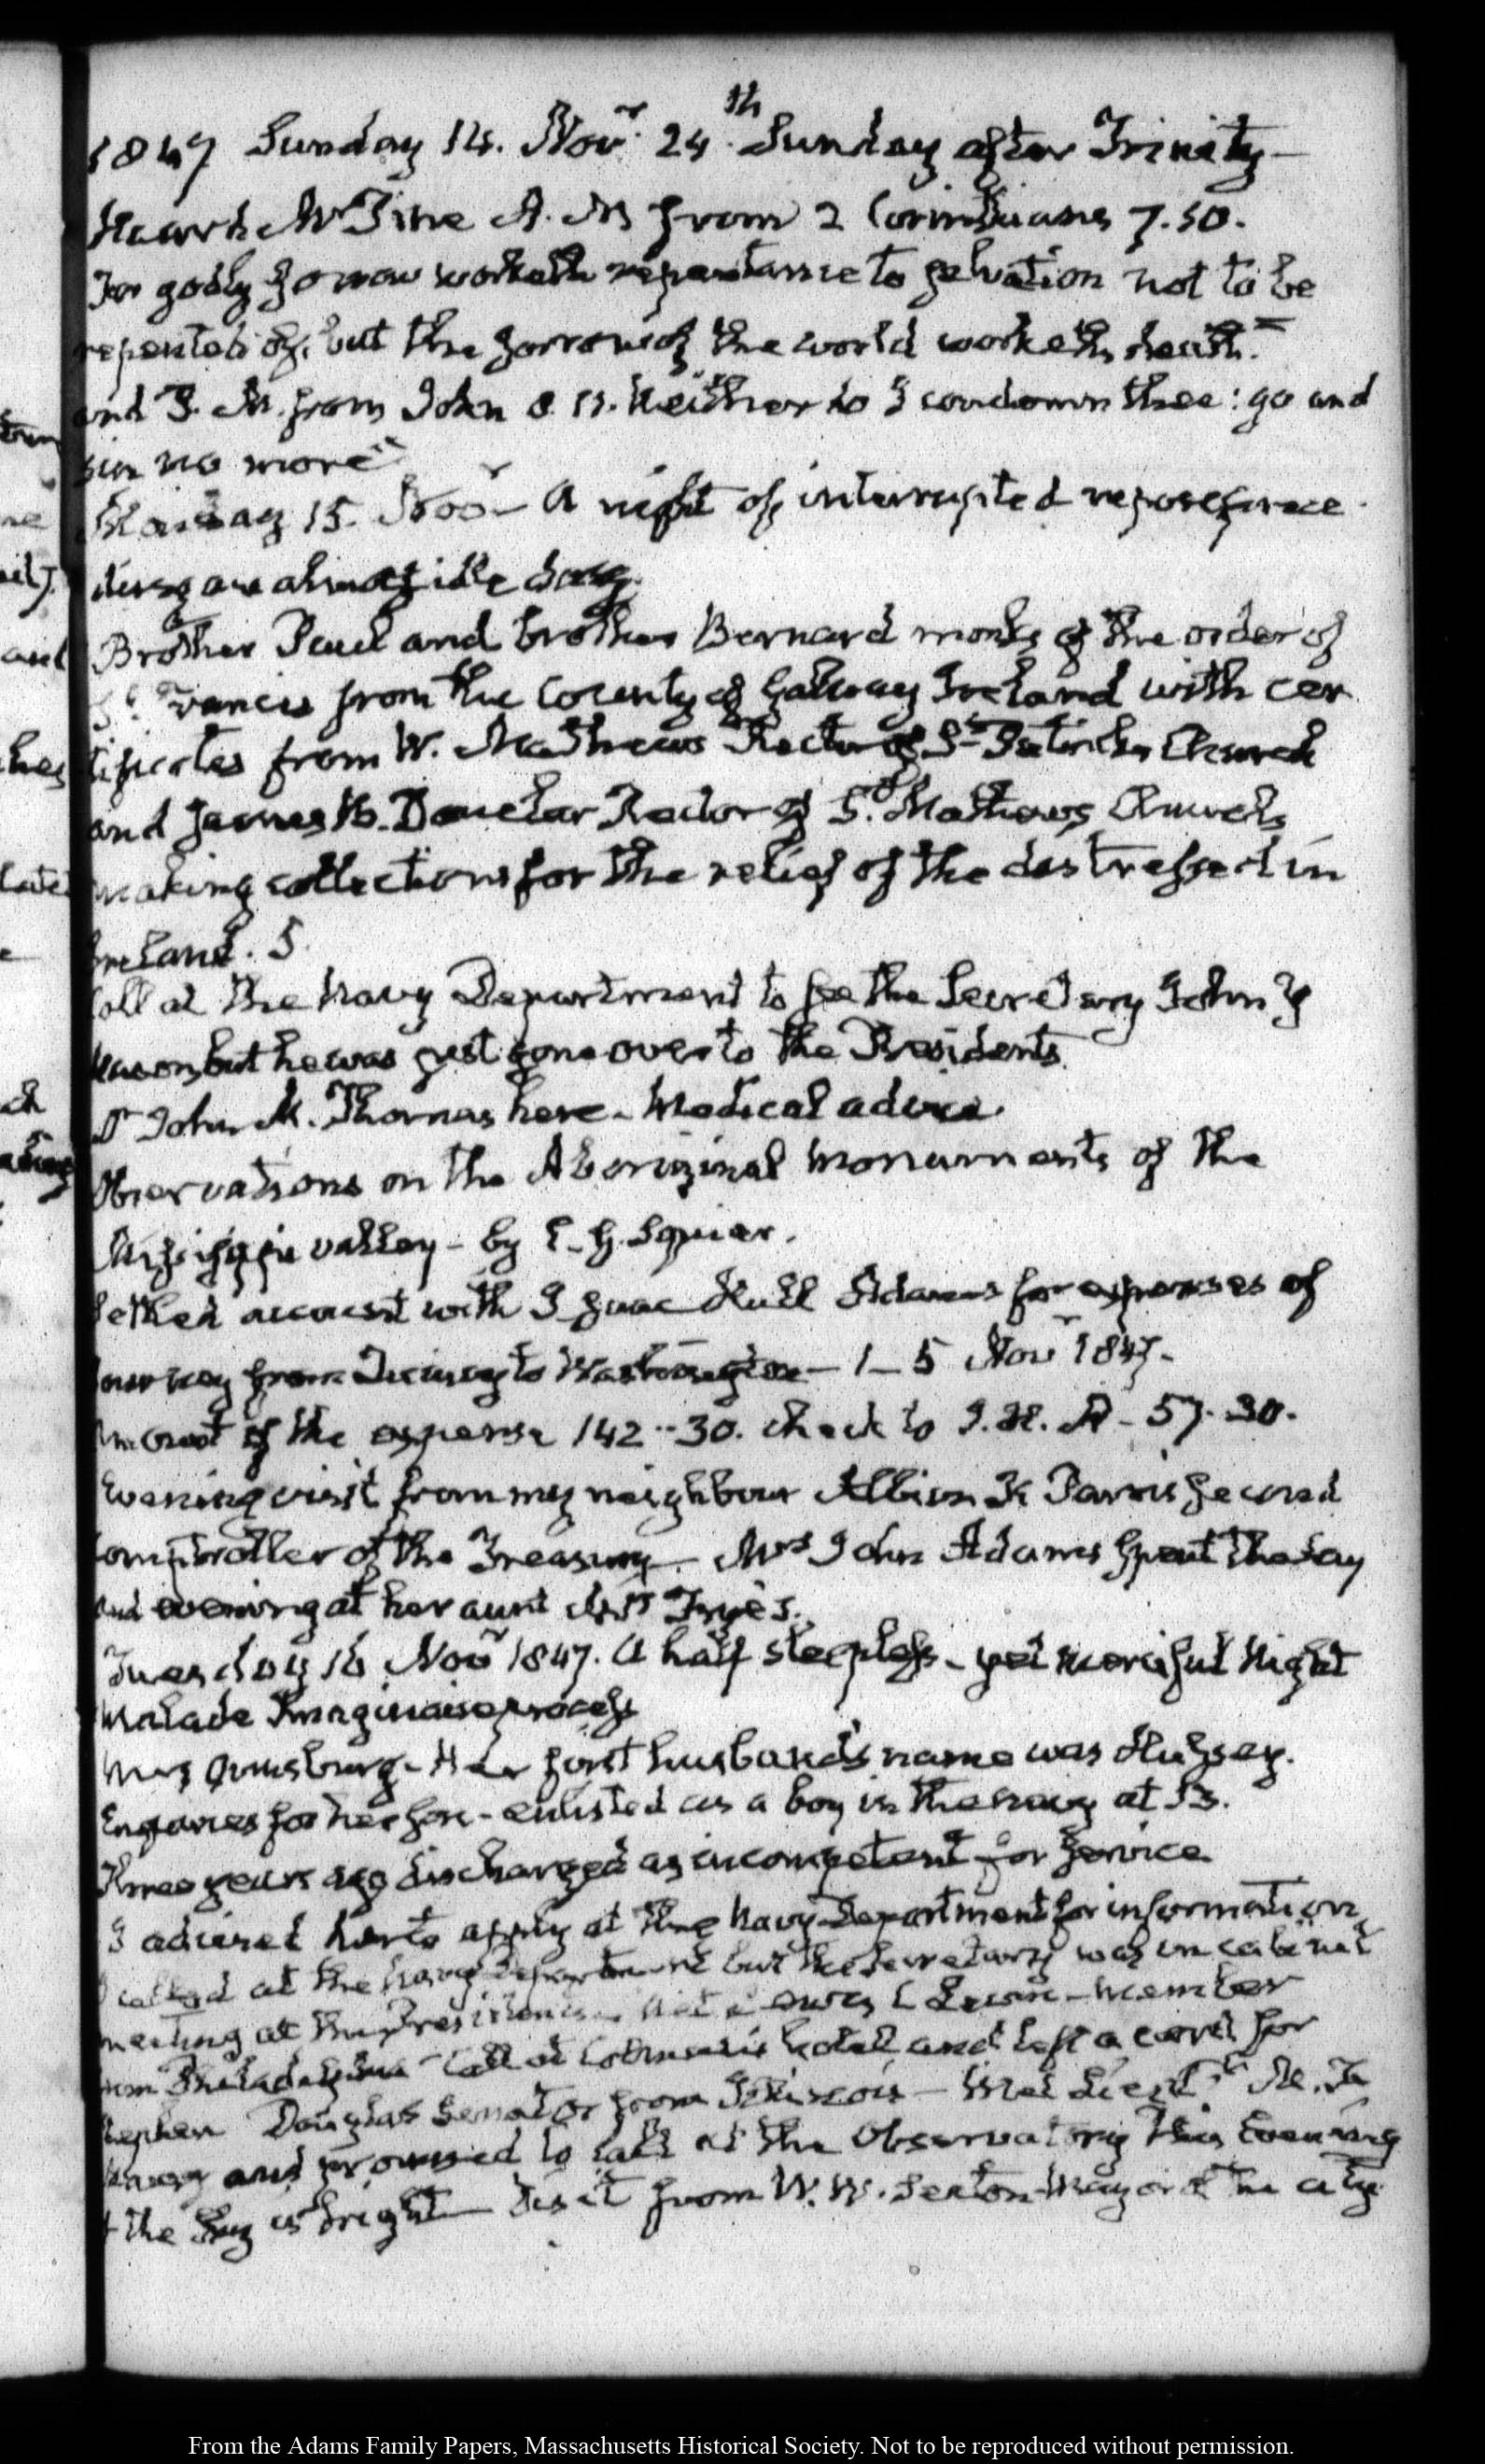 1847 Sunday 14. Novr. 24th Sunday after Trinity—
Heard Mr Pine A. M from 2 Corinthians 7.10.
For godly sorrow worketh repentance to salvation not to be
repented of, but the sorrow of the world worketh death."
and P. M. from John 8. 11. Neither do I condemn thee: go and
sin no more"
Monday 15. Novr— A night of interrupted repose
an almost idle day.
Brother Paul and brother Bernard monks of the order of
St. Francis from the County of Galway Ireland with cer
tificates from W. Mathews Rector of St. Patricks Church
and James B. Donelan Rector of St. Mathews Church
making collections for the relief of the distressed in
Ireland. 5.
Call at the Navy Department to see the Secretary John Y
Mason, but he was just gone over to the Presidents.
Dr John M. Thomas here— Medical advice.
Observations on the Aboriginal Monuments of the
Mississippi valley— by E. G. Squier.
Settled account with Isaac Hull Adams for expenses of
journey from Quincy to Washington— 1—5 Novr 1847.
Amount of the expense 142..30. check to I. H. A— 57.30.
Evening visit from my neighbour Albion K Parris second
Comptroller of the Treasury. Mrs John Adams spent the day
and evening at her aunt Mrs Frye's.
Tuesday 16 Novr 1847. A half sleepless— yet merciful Night
Malade Imaginaire process
Mrs Ormsburg— Her first husband's name was Hussey.
Enquires for her son— enlisted as a boy in the navy at 13.
Three years ago discharged as incompetent for service
I advised her to apply at the Navy Department for information
I called at the Navy Department but the Secretary was in cabinet
meeting at the Presidents. Met Lewis C Levin— member
from Philadelphia— Call at Colman's hotel and left a card for
Stephen Douglas Senator from Illinois— Met Lieutt M. F.
Maury and promised to call at the Observatory this Evening
if the sky is bright— Visit from W. W. Seaton Mayor of the city